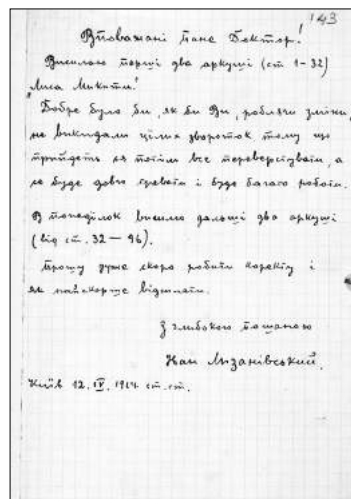 143
Вповажані Пане Доктор!
Висилаю перші два аркуші (ст 1–32)
"Лиса Микити".
Добре було би, як би Ви, роблячи зміни,
не викидали цілих звороток тому що
прийдеть ся потім все переверстувати, а
се буде довго тревати і буде багато роботи.
В понеділок вишлю дальші два аркуші
(від ст. 32 — 96).
Прошу дуже скоро робити коректу і
як найскорше відіслати.
З глибокою пошаною
Іван Лизанівський.
Київ 12. IV. 1914 ст. ст.